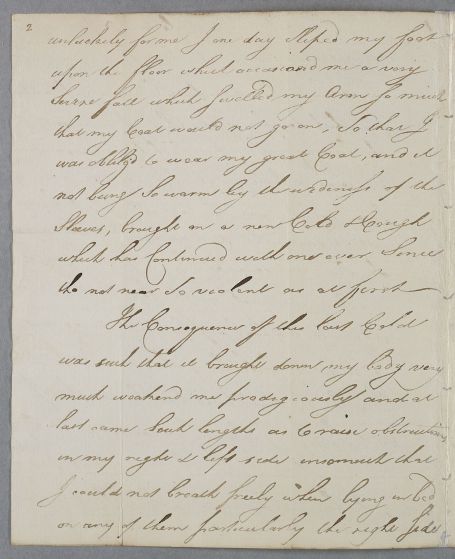 2
unluckely for me I one day sliped my foot
upon the floor which occasiond me a very
Severe fall which swelled my Arm so much
that my Coat would not go on, So that I
was oblig'd to wear my great Coat, and it
not being So warm by the wideness of the
Sleeves, brought on a new Cold & Cough
which has Continued with me ever Since
tho not near So violent as at first—
The Consequence of this last Cold
was such that it brought down my Body very
much weakend me prodigiously and at
last came Such lengths as to raise obstructions
in my right & left side insomuch that
I could not breath freely when lying in bed
on any of them particularly the right Side